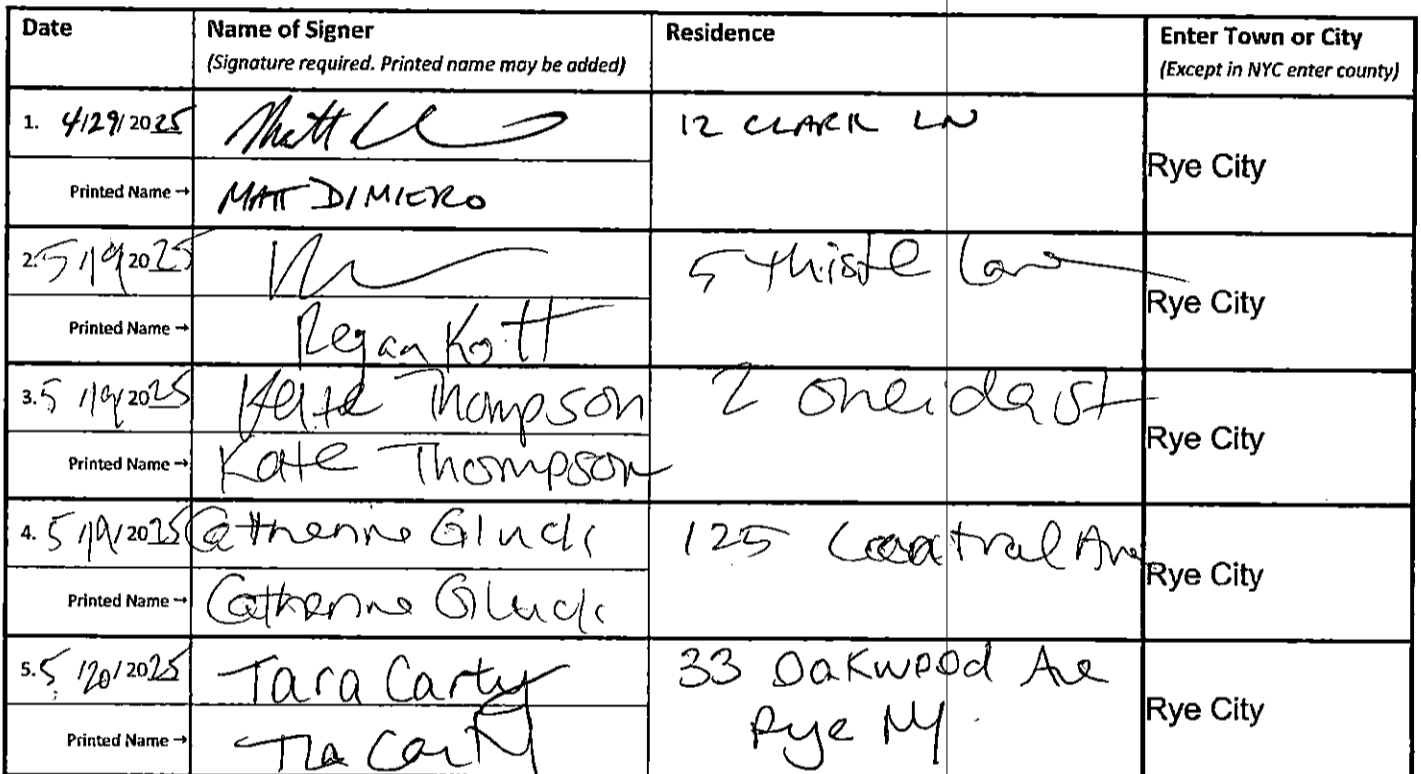 Date Name of Signer Residence Enter Town or City
(Signature required. Printed name may be added) (Except in NYC enter county)
1. 4/29/2025 Matt 12 CLARK LN
Rye City
Printed Name → MATT DIMIERO
2. 5/19/2025 5 Thistle Lane
Rye City
Printed Name → Regan Kott
3. 5/19/2025 Kate Thompson 2 Oneida St
Rye City
Printed Name → Kate Thompson
4. 5/19/2025 Catherine Gluck 125 Central Ave
Rye City
Printed Name → Catherine Gluck
5. 5/20/2025 Tara Carty 33 Oakwood Ave
Rye NY Rye City
Printed Name → Carty